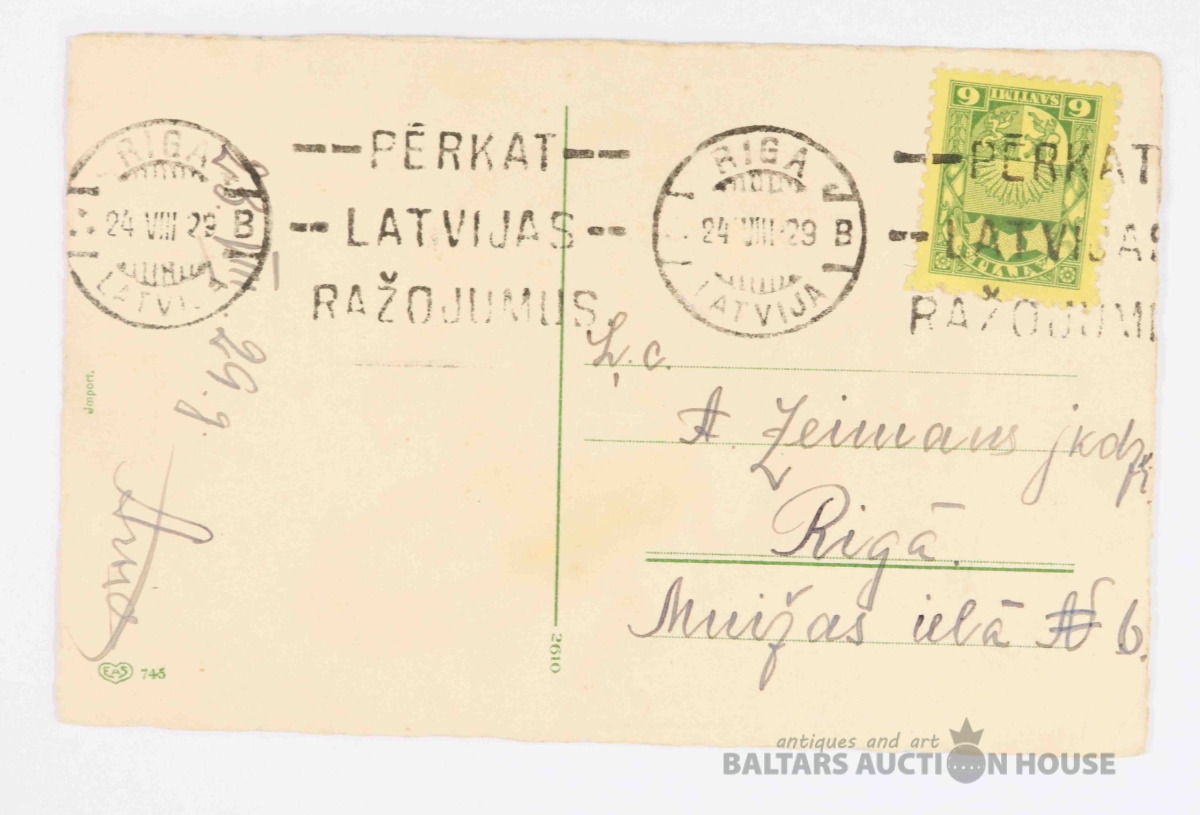 RIGA
24 VIII 29 B
LATVIJA
PĒRKAT
LATVIJAS
RAŽOJUMUS
RIGA
24 VIII 29 B
LATVIJA
PĒRKAT
LATVIJAS
RAŽOJUMU
6 SANTIMI 6
LATVIJA
VIII 29. g.
Ļ. c.
A. Zeimans jkdz.
Rigā.
Muižas ielā № 6.
Jmport.
EAS 745
2610
antiques and art
BALTARS AUCTION HOUSE